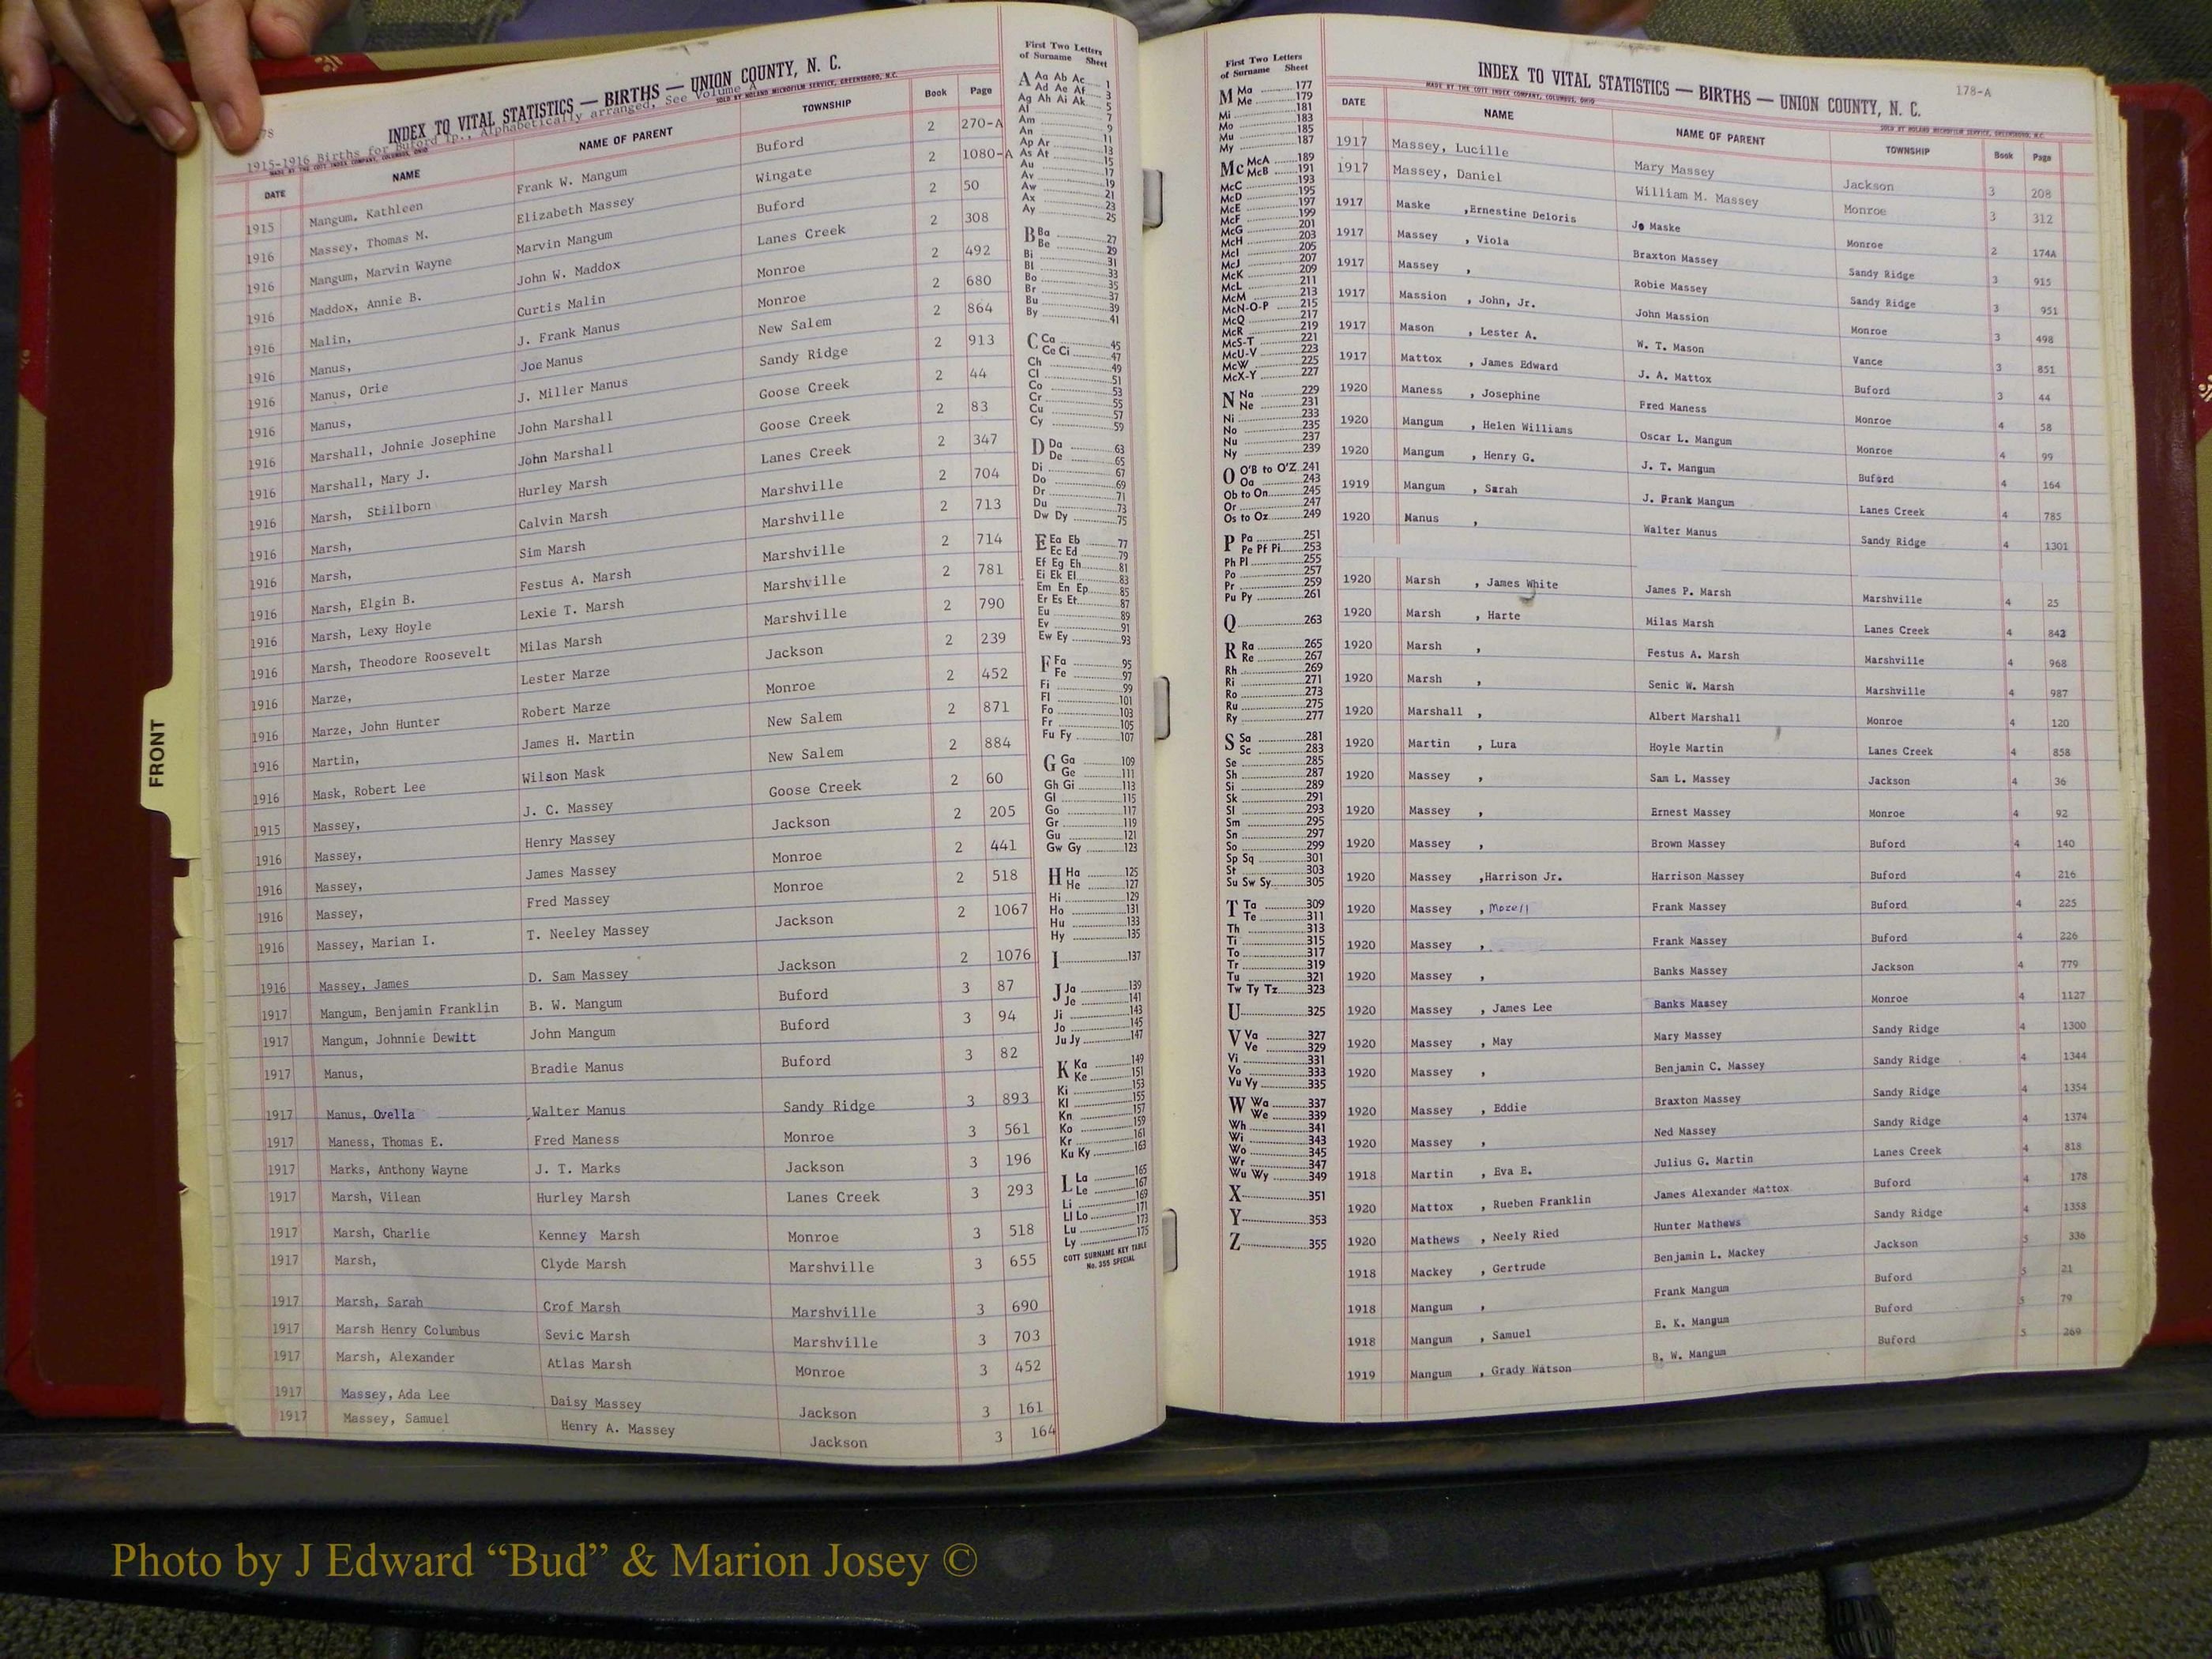 178
INDEX TO VITAL STATISTICS — BIRTHS — UNION COUNTY, N. C.
1915-1916 Births for Buford Tp., Alphabetically arranged, See Volume A
MADE BY THE COTT INDEX COMPANY, COLUMBUS, OHIO SOLD BY NOLAND MICROFILM SERVICE, GREENSBORO, N.C.
DATE NAME NAME OF PARENT TOWNSHIP Book Page
1915 Mangum. Kathleen Frank W. Mangum Buford 2 270-A
1916 Massey, Thomas M. Elizabeth Massey Wingate 2 1080-A
1916 Mangum, Marvin Wayne Marvin Mangum Buford 2 50
1916 Maddox, Annie B. John W. Maddox Lanes Creek 2 308
1916 Malin, Curtis Malin Monroe 2 492
1916 Manus, J. Frank Manus Monroe 2 680
1916 Manus, Orie Joe Manus New Salem 2 864
1916 Manus, J. Miller Manus Sandy Ridge 2 913
1916 Marshall, Johnie Josephine John Marshall Goose Creek 2 44
1916 Marshall, Mary J. John Marshall Goose Creek 2 83
1916 Marsh, Stillborn Hurley Marsh Lanes Creek 2 347
1916 Marsh, Calvin Marsh Marshville 2 704
1916 Marsh, Sim Marsh Marshville 2 713
1916 Marsh, Elgin B. Festus A. Marsh Marshville 2 714
1916 Marsh, Lexy Hoyle Lexie T. Marsh Marshville 2 781
1916 Marsh, Theodore Roosevelt Milas Marsh Marshville 2 790
1916 Marze, Lester Marze Jackson 2 239
1916 Marze, John Hunter Robert Marze Monroe 2 452
1916 Martin, James H. Martin New Salem 2 871
1916 Mask, Robert Lee Wilson Mask New Salem 2 884
1915 Massey, J. C. Massey Goose Creek 2 60
1916 Massey, Henry Massey Jackson 2 205
1916 Massey, James Massey Monroe 2 441
1916 Massey, Fred Massey Monroe 2 518
1916 Massey, Marian I. T. Neeley Massey Jackson 2 1067
1916 Massey, James D. Sam Massey Jackson 2 1076
1917 Mangum, Benjamin Franklin B. W. Mangum Buford 3 87
1917 Mangum, Johnnie Dewitt John Mangum Buford 3 94
1917 Manus, Bradie Manus Buford 3 82
1917 Manus, Ovella Walter Manus Sandy Ridge 3 893
1917 Maness, Thomas E. Fred Maness Monroe 3 561
1917 Marks, Anthony Wayne J. T. Marks Jackson 3 196
1917 Marsh, Vilean Hurley Marsh Lanes Creek 3 293
1917 Marsh, Charlie Kenney Marsh Monroe 3 518
1917 Marsh, Clyde Marsh Marshville 3 655
1917 Marsh, Sarah Crof Marsh Marshville 3 690
1917 Marsh Henry Columbus Sevic Marsh Marshville 3 703
1917 Marsh, Alexander Atlas Marsh Monroe 3 452
1917 Massey, Ada Lee Daisy Massey Jackson 3 161
1917 Massey, Samuel Henry A. Massey Jackson 3 164
FRONT
First Two Letters
of Surname Sheet
A Aa Ab Ac 1
Ad Ae Af 3
Ag Ah Ai Ak 5
Al 7
Am 9
An 11
Ap Ar 13
As At 15
Au 17
Av 19
Aw 21
Ax 23
Ay 25
B Ba 27
Be 29
Bi 31
Bl 33
Bo 35
Br 37
Bu 39
By 41
C Ca 45
Ce Ci 47
Ch 49
Cl 51
Co 53
Cr 55
Cu 57
Cy 59
D Da 63
De 65
Di 67
Do 69
Dr 71
Du 73
Dw Dy 75
E Ea Eb 77
Ec Ed 79
Ef Eg Eh 81
Ei Ek El 83
Em En Ep 85
Er Es Et 87
Eu 89
Ev 91
Ew Ey 93
F Fa 95
Fe 97
Fi 99
Fl 101
Fo 103
Fr 105
Fu Fy 107
G Ga 109
Ge 111
Gh Gi 113
Gl 115
Go 117
Gr 119
Gu 121
Gw Gy 123
H Ha 125
He 127
Hi 129
Ho 131
Hu 133
Hy 135
I 137
J Ja 139
Je 141
Ji 143
Jo 145
Ju Jy 147
K Ka 149
Ke 151
Ki 153
Kl 155
Kn 157
Ko 159
Kr 161
Ku Ky 163
L La 165
Le 167
Li 169
Ll Lo 171
Lu 173
Ly 175
COTT SURNAME KEY TABLE
No. 355 SPECIAL
First Two Letters
of Surname Sheet
M Ma 177
Me 179
Mi 181
Mo 183
Mu 185
My 187
Mc McA 189
McB 191
McC 193
McD 195
McE 197
McF 199
McG 201
McH 203
McI 205
McJ 207
McK 209
McL 211
McM 213
McN-O-P 215
McQ 217
McR 219
McS-T 221
McU-V 223
McW 225
McX-Y 227
N Na 229
Ne 231
Ni 233
No 235
Nu 237
Ny 239
O O'B to O'Z 241
Oa 243
Ob to On 245
Or 247
Os to Oz 249
P Pa 251
Pe Pf Pi 253
Ph Pl 255
Po 257
Pr 259
Pu Py 261
Q 263
R Ra 265
Re 267
Rh 269
Ri 271
Ro 273
Ru 275
Ry 277
S Sa 281
Sc 283
Se 285
Sh 287
Si 289
Sk 291
Sl 293
Sm 295
Sn 297
So 299
Sp Sq 301
St 303
Su Sw Sy 305
T Ta 309
Te 311
Th 313
Ti 315
To 317
Tr 319
Tu 321
Tw Ty Tz 323
U 325
V Va 327
Ve 329
Vi 331
Vo 333
Vu Vy 335
W Wa 337
We 339
Wh 341
Wi 343
Wo 345
Wr 347
Wu Wy 349
X 351
Y 353
Z 355
178-A
INDEX TO VITAL STATISTICS — BIRTHS — UNION COUNTY, N. C.
MADE BY THE COTT INDEX COMPANY, COLUMBUS, OHIO SOLD BY NOLAND MICROFILM SERVICE, GREENSBORO, N.C.
DATE NAME NAME OF PARENT TOWNSHIP Book Page
1917 Massey, Lucille Mary Massey Jackson 3 208
1917 Massey, Daniel William M. Massey Monroe 3 312
1917 Maske ,Ernestine Deloris Jo Maske Monroe 2 174A
1917 Massey , Viola Braxton Massey Sandy Ridge 3 915
1917 Massey , Robie Massey Sandy Ridge 3 951
1917 Massion , John, Jr. John Massion Monroe 3 498
1917 Mason , Lester A. W. T. Mason Vance 3 851
1917 Mattox , James Edward J. A. Mattox Buford 3 44
1920 Maness , Josephine Fred Maness Monroe 4 58
1920 Mangum , Helen Williams Oscar L. Mangum Monroe 4 99
1920 Mangum , Henry G. J. T. Mangum Buford 4 164
1919 Mangum , Sarah J. Frank Mangum Lanes Creek 4 785
1920 Manus , Walter Manus Sandy Ridge 4 1301
1920 Marsh , James White James P. Marsh Marshville 4 25
1920 Marsh , Harte Milas Marsh Lanes Creek 4 843
1920 Marsh , Festus A. Marsh Marshville 4 968
1920 Marsh , Senic W. Marsh Marshville 4 987
1920 Marshall , Albert Marshall Monroe 4 120
1920 Martin , Lura Hoyle Martin Lanes Creek 4 858
1920 Massey , Sam L. Massey Jackson 4 36
1920 Massey , Ernest Massey Monroe 4 92
1920 Massey , Brown Massey Buford 4 140
1920 Massey ,Harrison Jr. Harrison Massey Buford 4 216
1920 Massey , Morell Frank Massey Buford 4 225
1920 Massey , Frank Massey Buford 4 226
1920 Massey , Banks Massey Jackson 4 779
1920 Massey , James Lee Banks Massey Monroe 4 1127
1920 Massey , May Mary Massey Sandy Ridge 4 1300
1920 Massey , Benjamin C. Massey Sandy Ridge 4 1344
1920 Massey , Eddie Braxton Massey Sandy Ridge 4 1354
1920 Massey , Ned Massey Sandy Ridge 4 1374
1918 Martin , Eva E. Julius G. Martin Lanes Creek 4 818
1920 Mattox , Rueben Franklin James Alexander Mattox Buford 4 178
1920 Mathews , Neely Ried Hunter Mathews Sandy Ridge 4 1358
1918 Mackey , Gertrude Benjamin L. Mackey Jackson 5 336
1918 Mangum , Frank Mangum Buford 5 21
1918 Mangum , Samuel E. K. Mangum Buford 5 79
1919 Mangum , Grady Watson B. W. Mangum Buford 5 269
Photo by J Edward “Bud” & Marion Josey ©